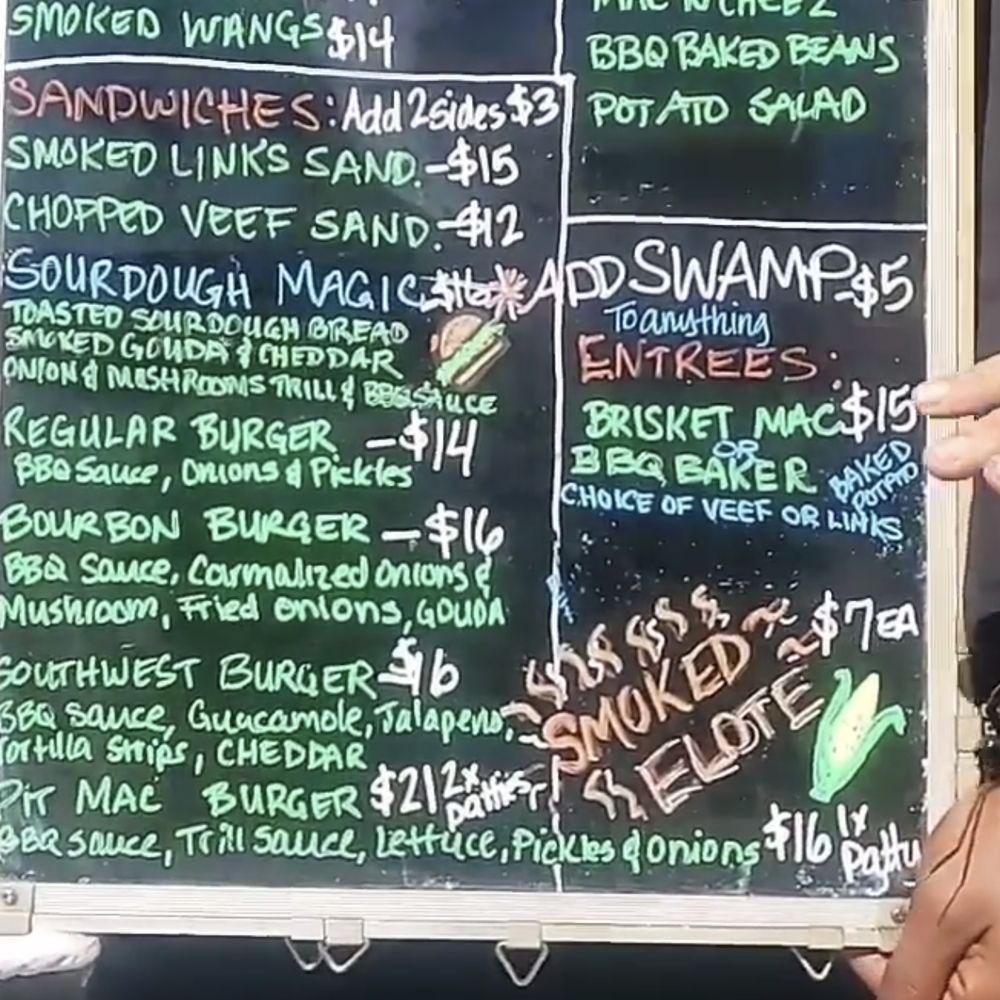 SMOKED WANGS $14
SANDWICHES: Add 2sides $3
SMOKED LINKS SAND. -$15
CHOPPED VEEF SAND. -$12
SOURDOUGH MAGIC $16
TOASTED SOURDOUGH BREAD
SMOKED GOUDA & CHEDDAR
ONION & MUSHROOMS TRILL & BBQ SAUCE
REGULAR BURGER - $14
BBQ Sauce, Onions & Pickles
BOURBON BURGER - $16
BBQ Sauce, Carmalized Onions &
Mushroom, Fried Onions, GOUDA
SOUTHWEST BURGER - $16
BBQ Sauce, Guacamole, Jalapeno,
Tortilla Strips, CHEDDAR
PIT MAC BURGER $21 2x patties
BBQ Sauce, Trill Sauce, Lettuce, Pickles & Onions $16 1x Patty
MAC N CHEEZ
BBQ BAKED BEANS
POTATO SALAD
*ADD SWAMP - $5
To anything
ENTREES:
BRISKET MAC $15
OR
BBQ BAKER BAKED POTATO
CHOICE OF VEEF OR LINKS
SMOKED $7 EA
ELOTE